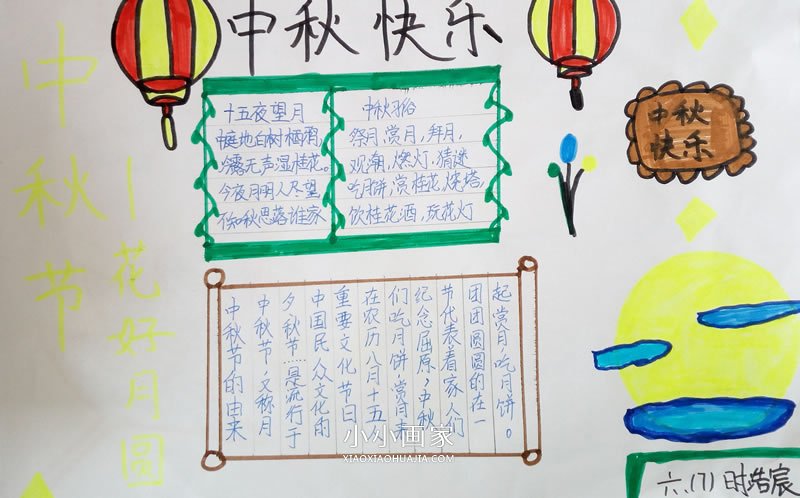 中秋快乐
中秋节
花好月圆
十五夜望月
中庭地白树栖鸦,
冷露无声湿桂花。
今夜月明人尽望
不知秋思落谁家
中秋习俗
祭月,赏月,拜月,
观潮,燃灯,猜迷
吃月饼,赏桂花,烧塔,
饮桂花酒,玩花灯
中秋
快乐
中秋节的由来
中秋节,又称月
夕,秋节……是流行于
中国民众文化的
重要文化节日
在农历八月十五人
们吃月饼,赏月来
纪念屈原,中秋
节代表着家人们
团团圆圆的在一
起赏月,吃月饼。
小小画家
XIAOXIAOHUAJIA.COM
六、(7) 时浩宸